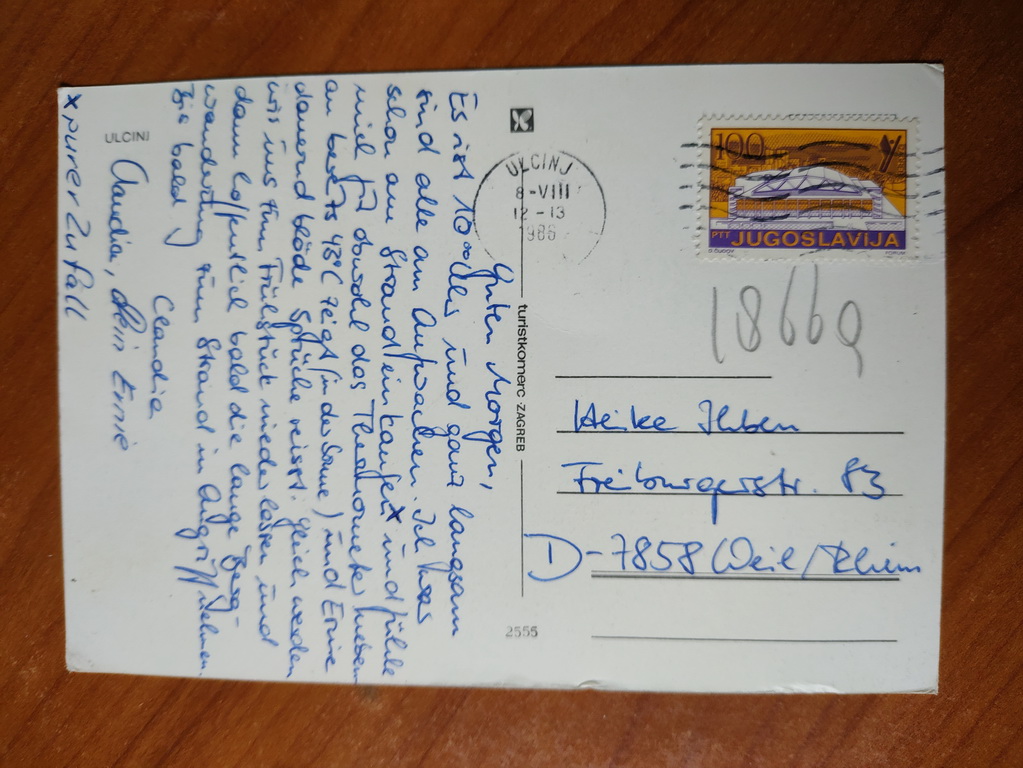 Guten Morgen,
Es ist 10 und ganz langsam
sind alle am Aufwachen. Ich was
schon am Strand/einkaufen x und fühle
mich fit obwohl das Thermometer neben
an bereits 43°C zeigt (in der Sonne) und Ernie
dauernd blöde Sprüche reisst. Gleich werden
wir uns zum Frühstück niederlassen und
dann hoffentlich bald die lange Berg-
wanderung zum Strand in Angriff nehmen.
Bis bald
Claudia
Claudia, Ernie
x purer Zufall
ULCINJ
turistkomerc · ZAGREB
2555
ULCINJ
8-VIII
12-13
1986
100
PTT JUGOSLAVIJA
18669
Heike
Freiburgerstr. 83
D-7858 Weil/Rhein